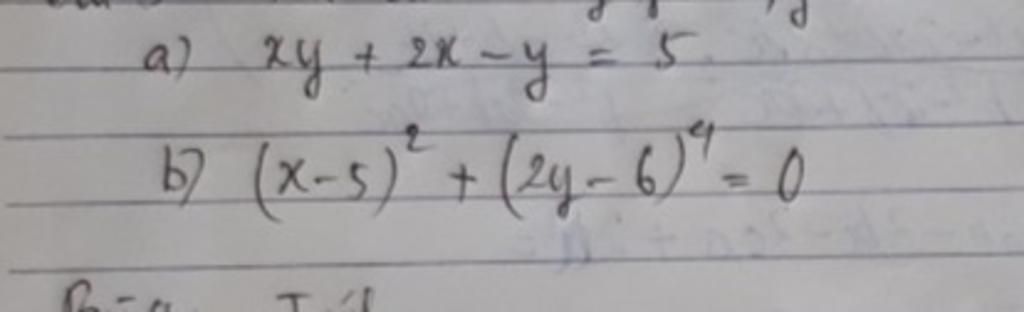 a) xy + 2x - y = 5
b) (x-5)² + (2y-6)⁴ = 0